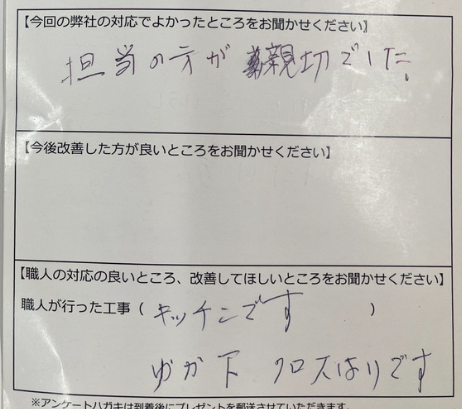 【今回の弊社の対応でよかったところをお聞かせください】
担当の方が親切でした。
【今後改善した方が良いところをお聞かせください】
【職人の対応の良いところ、改善してほしいところをお聞かせください】
職人が行った工事（ キッチンです ）
ゆか下 クロスはりです
※アンケートハガキは到着後にプレゼントを郵送させていただきます。